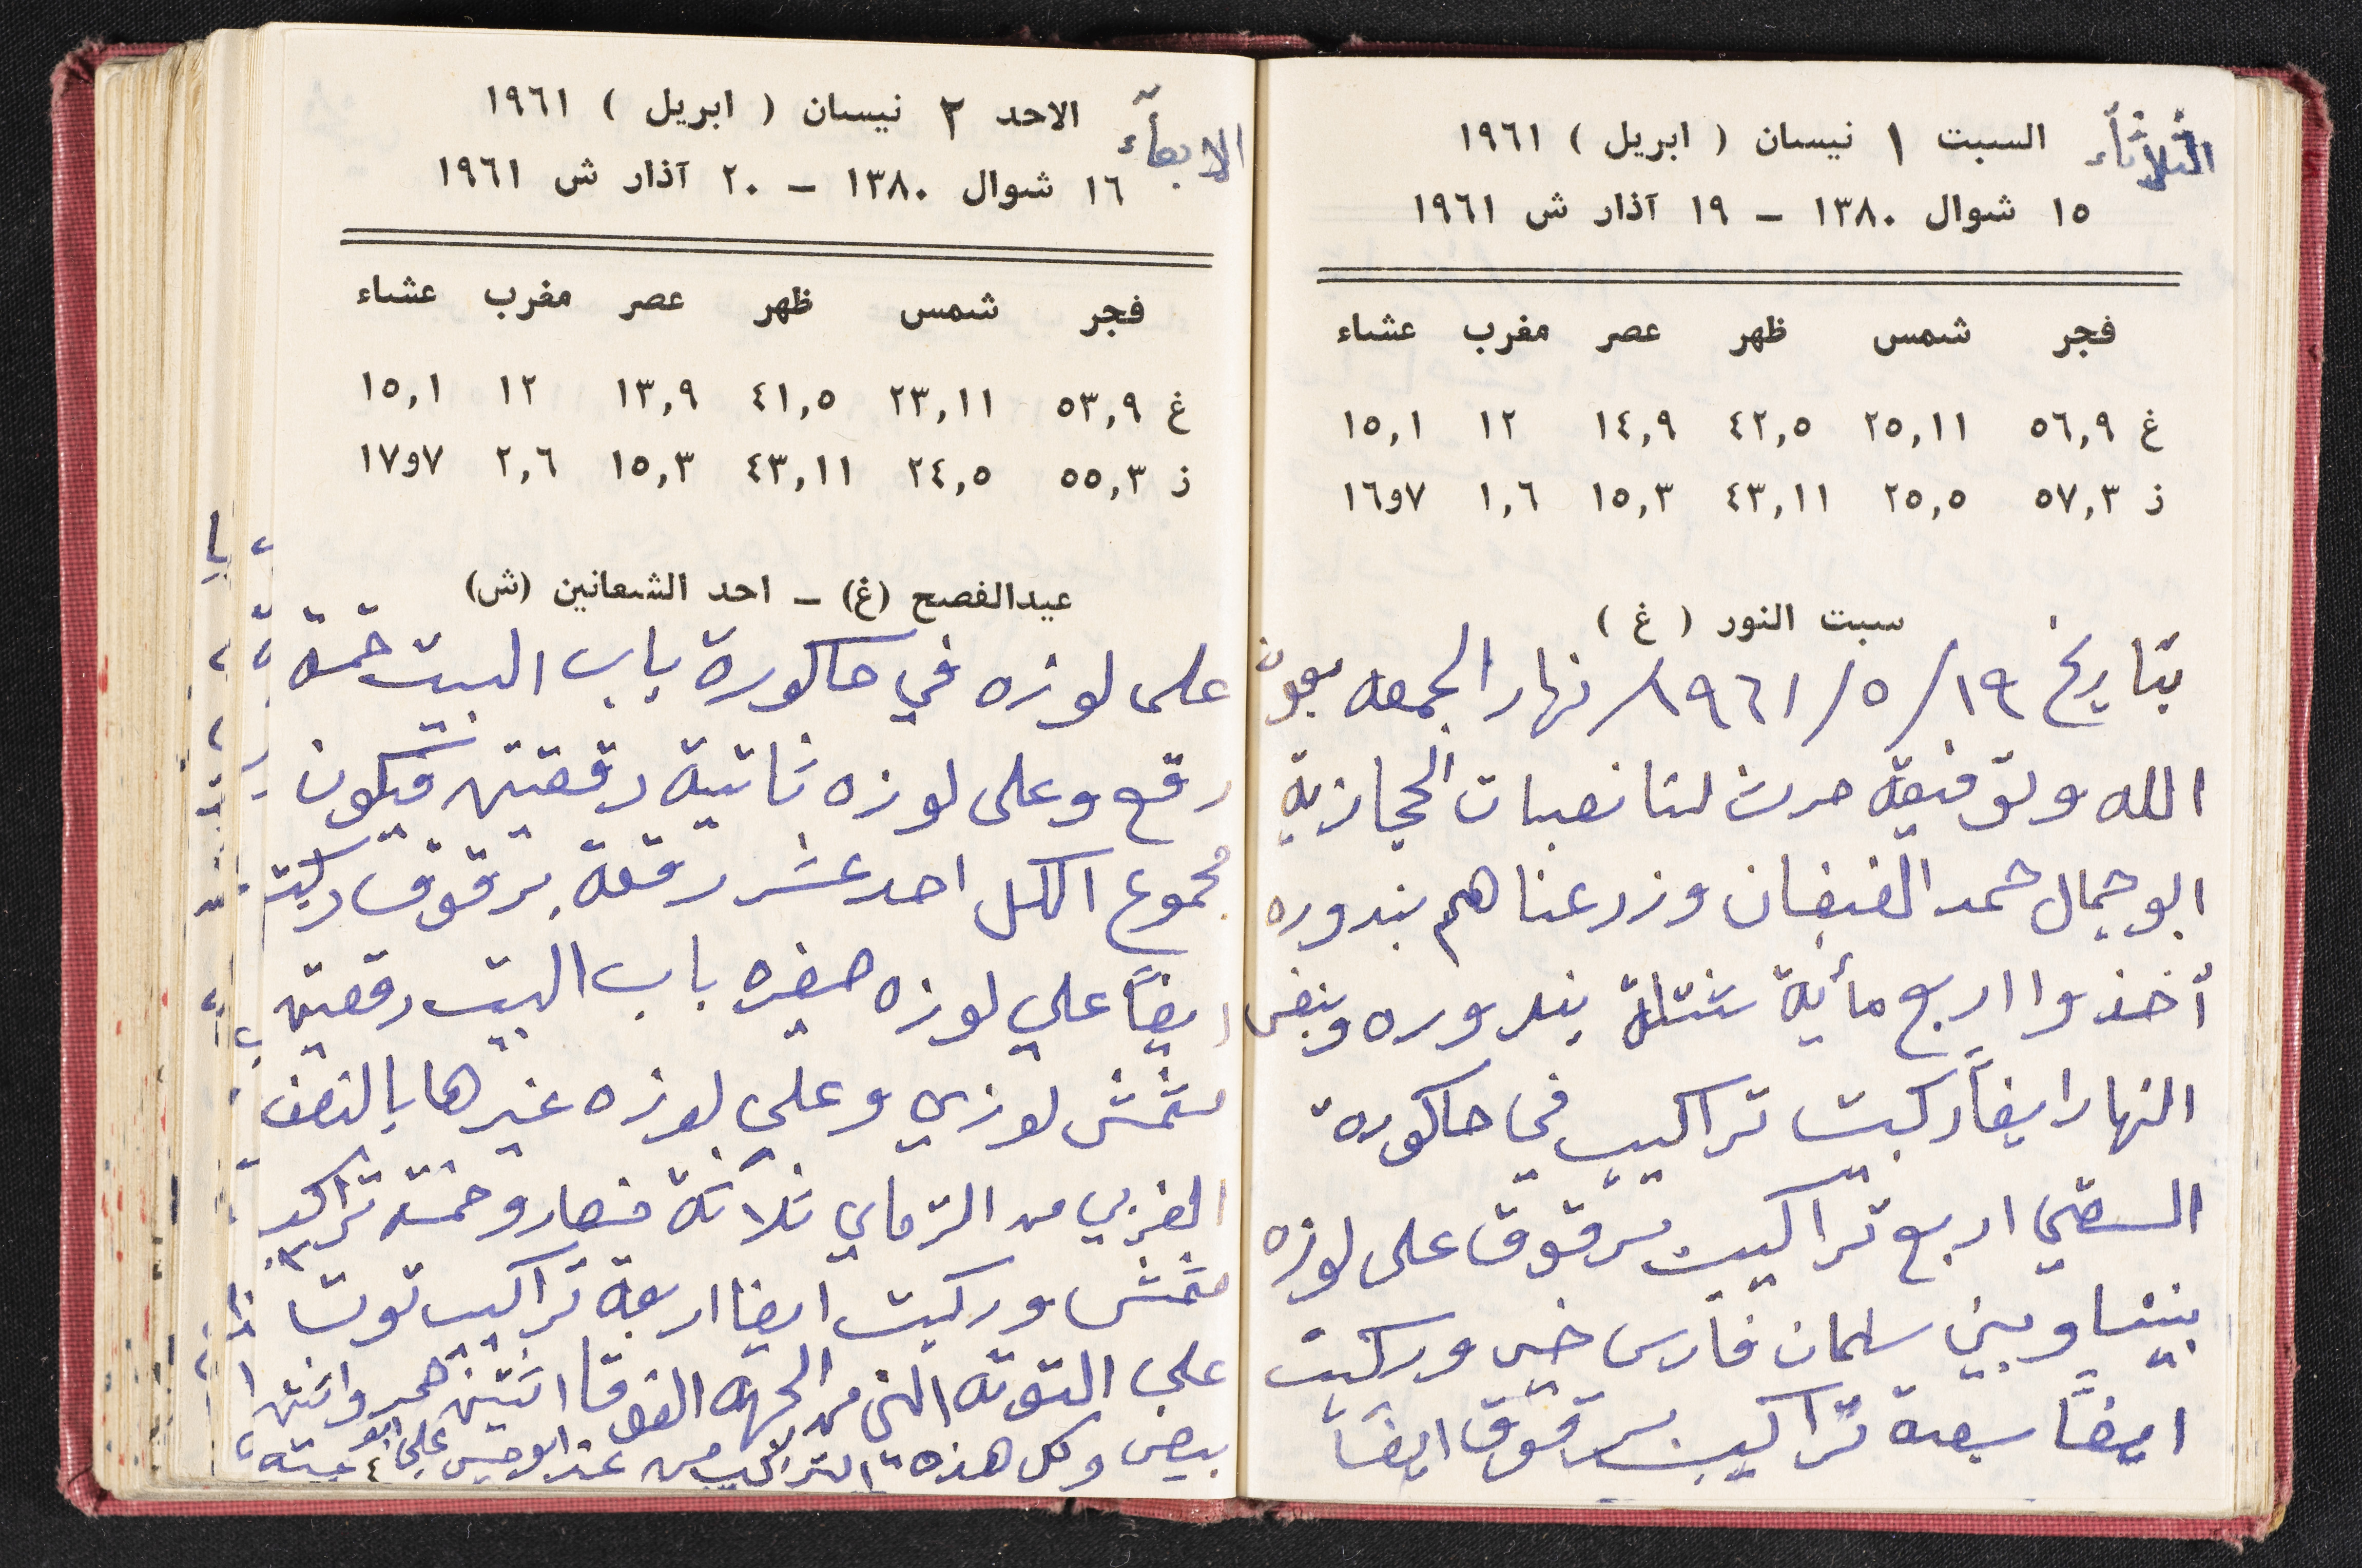 الثلاثاء
السبت ١ نيسان ( ابريل ) ١٩٦١
١٥ شوال ١٣٨٠ – ١٩ آذار ش ١٩٦١
فجر شمس ظهر عصر مغرب عشاء
غ ٥٦,٩ ٢٥,١١ ٤٢,٥ ١٤,٩ ١٢ ١٥,١
ز ٥٧,٣ ٢٥,٥ ٤٣,١١ ١٥,٣ ١,٦ ٧و١٦
سبت النور ( غ )
بتاريخ ١٩/٥/١٩٦١/ نهار الجمعه بعون
الله وتوفيقه حرث لنا نصبات الحجازية
ابو جمال حمد الغبفان وزرعناهم بندوره
أخذوا اربع مأية شتلة بندوره وبنفس
النهار ايضاً ركبت تراكيب في حاكورة
السقي اربع تراكيب برقوق على لوزه
بيننا وبين سلمان فارس خير وركبت
ايضاً سبعة تراكيب برقوق ايضاً
الاربعاء
الاحد ٢ نيسان ( ابريل ) ١٩٦١
١٦ شوال ١٣٨٠ – ٢٠ آذار ش ١٩٦١
فجر شمس ظهر عصر مغرب عشاء
غ ٥٣,٩ ٢٣,١١ ٤١,٥ ١٣,٩ ١٢ ١٥,١
ز ٥٥,٣ ٢٤,٥ ٤٣,١١ ١٥,٣ ٢,٦ ٧و١٧
عيدالفصح (غ) – احد الشعانين (ش)
على لوزه في حاكورة باب البيت خمسة
رقع وعلى لوزه ثانية رقعتين فيكون
مجموع الكل احد عشر رقعة برقوق ركبت
ايضاً علي لوزه صغيره باب البيت رقعتين
مشمش لوزي وعلي لوزه غيرها بالنصف
الغربي من الترماي ثلاثة فصارو خمسة تراكيب
مشمش وركبت ايضا اربعة تراكيب توت
علي التوته الني من الجهه الفوقا اثنين حمر واثنين
بيض وكل هذه التراكيب من عند ابو حسين علي ابو